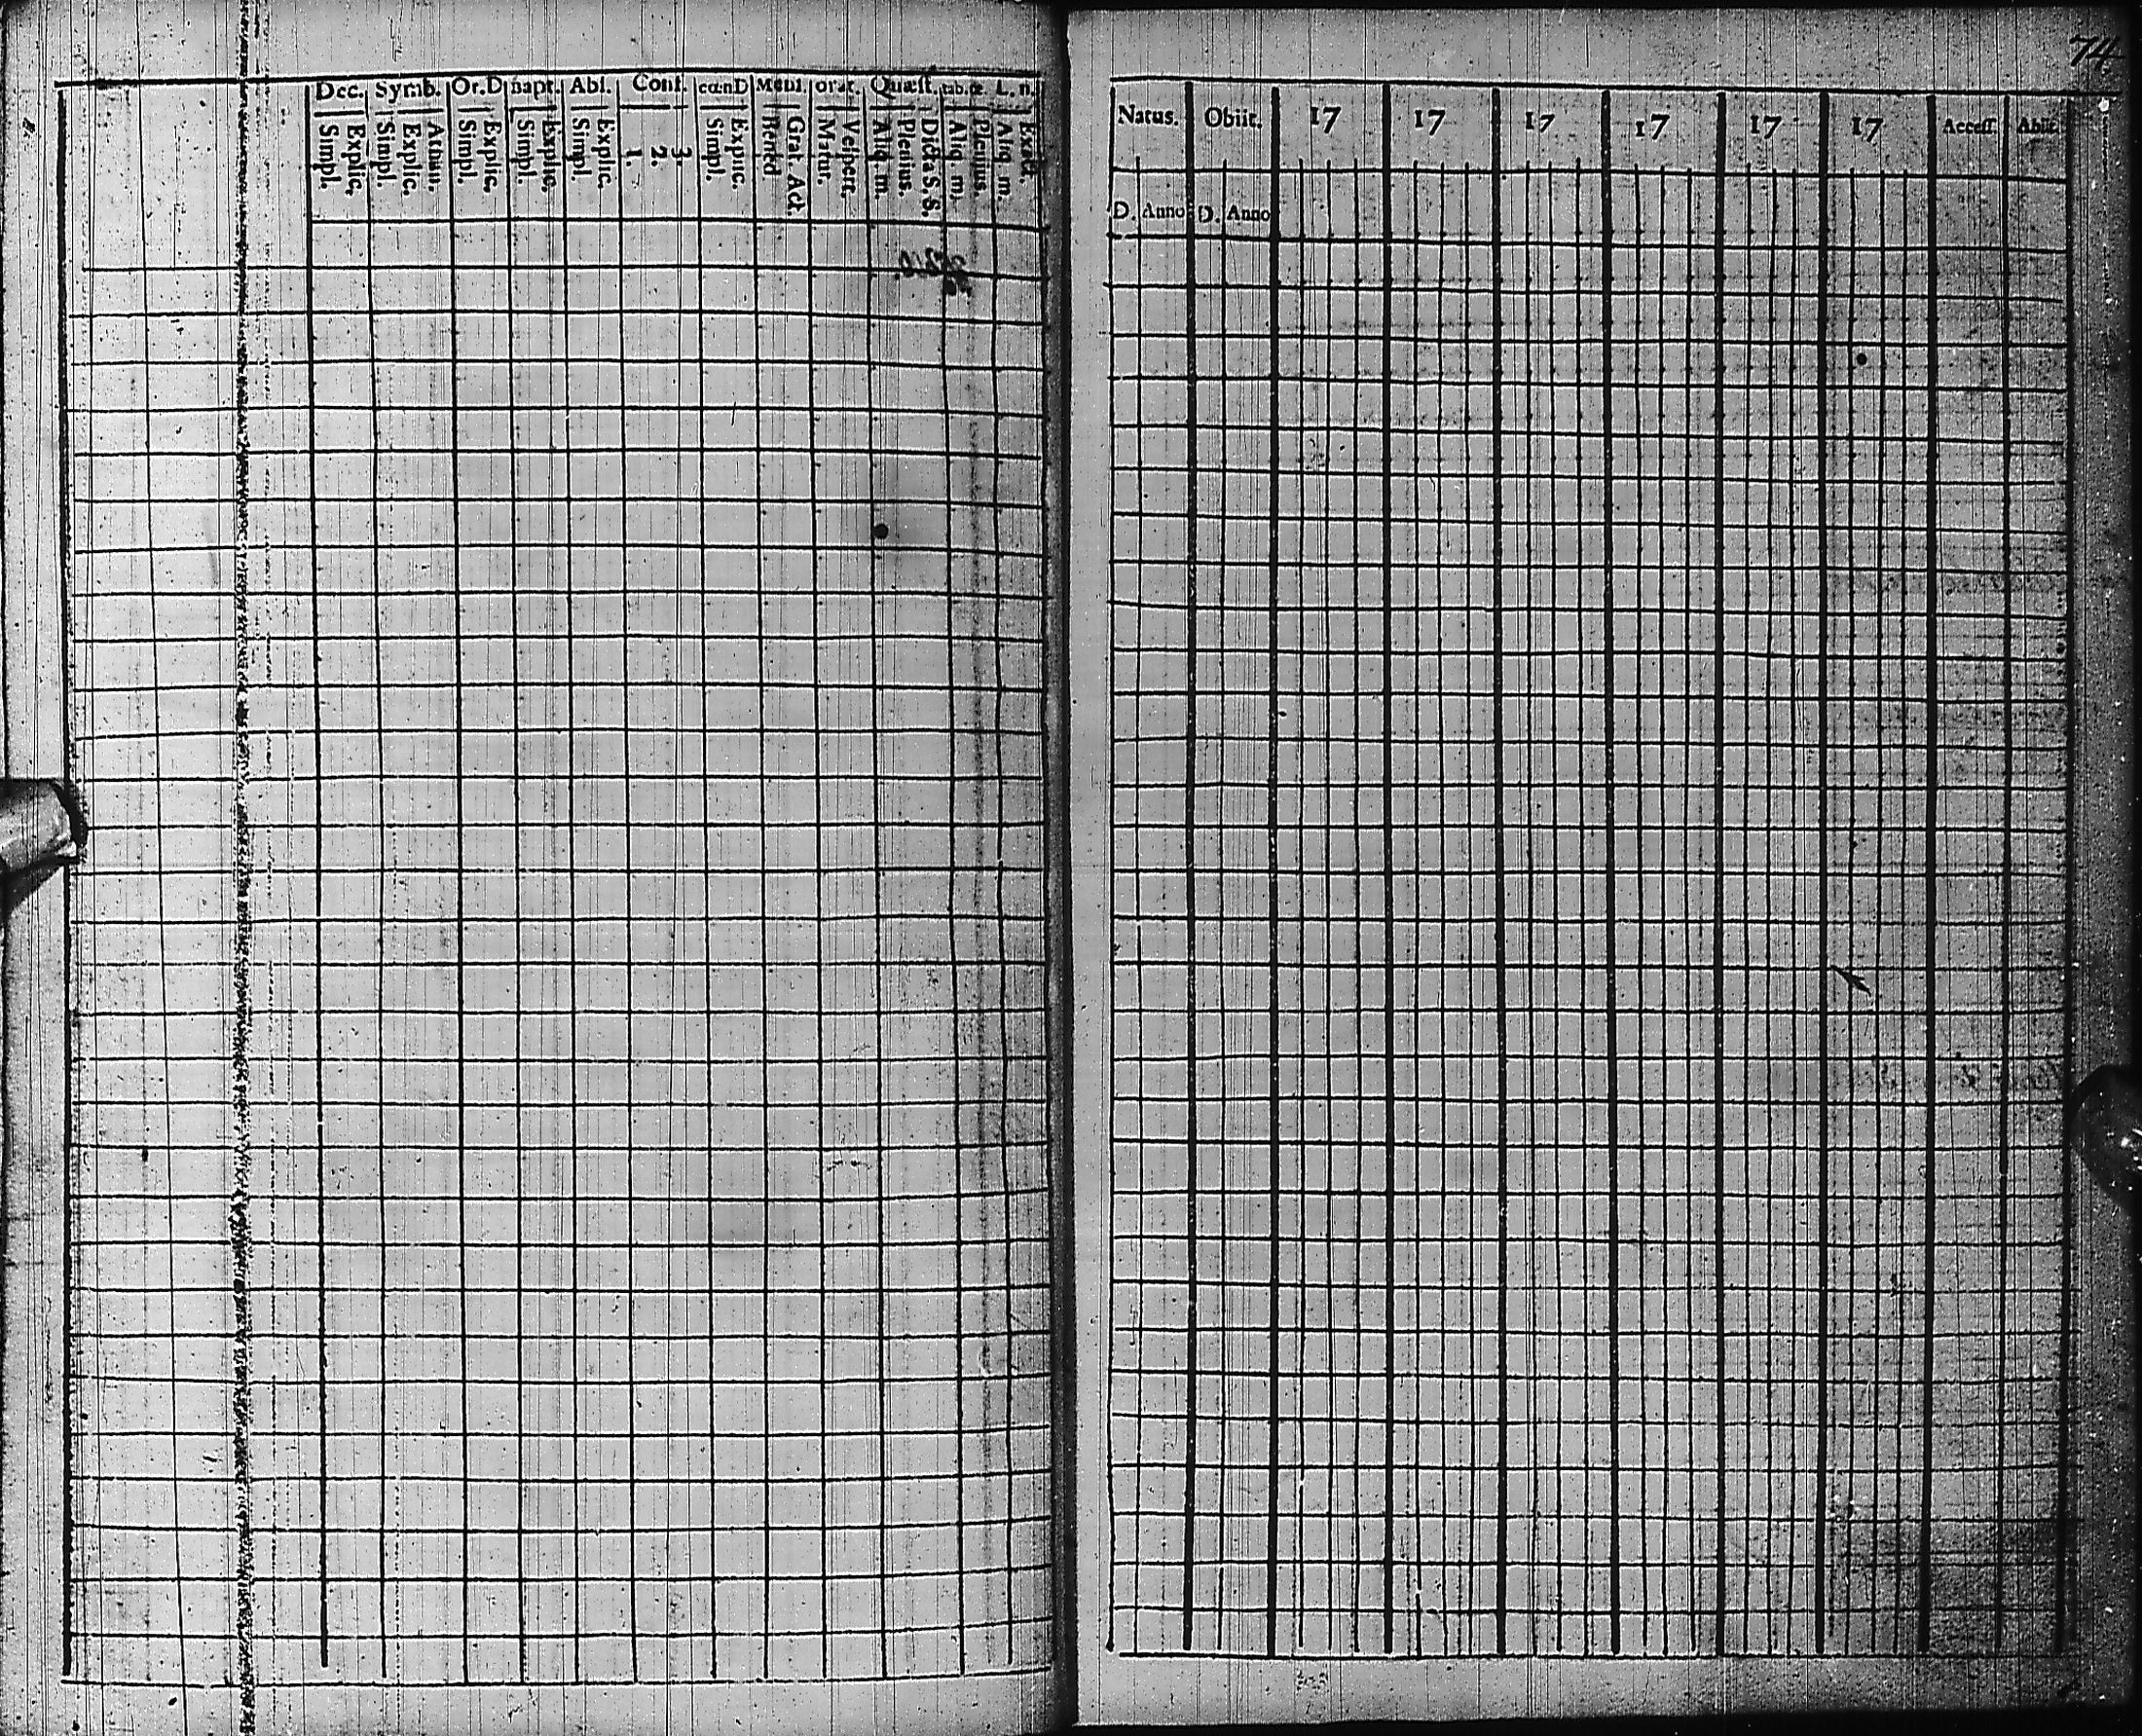 Dec. Symb. Or.D bapt. Abs. Conf. cœnD Menf. orat. Quæst. tab.œ. L. n.
Simpl. Explic. Simpl. Explic. Athan. Simpl. Explic. Simpl. Explic. Simpl. Explic. 1. 2. 3. Simpl. Explic. Bened Grat. Act. Matut. Vespert. Aliq. m. Plenius. Dicta S. S. Aliq. m. Plenius. Aliq. m. Exact.
74.
Natus. Obiit. 17 17 17 17 17 17 Access. Abiit.
D. Anno D. Anno